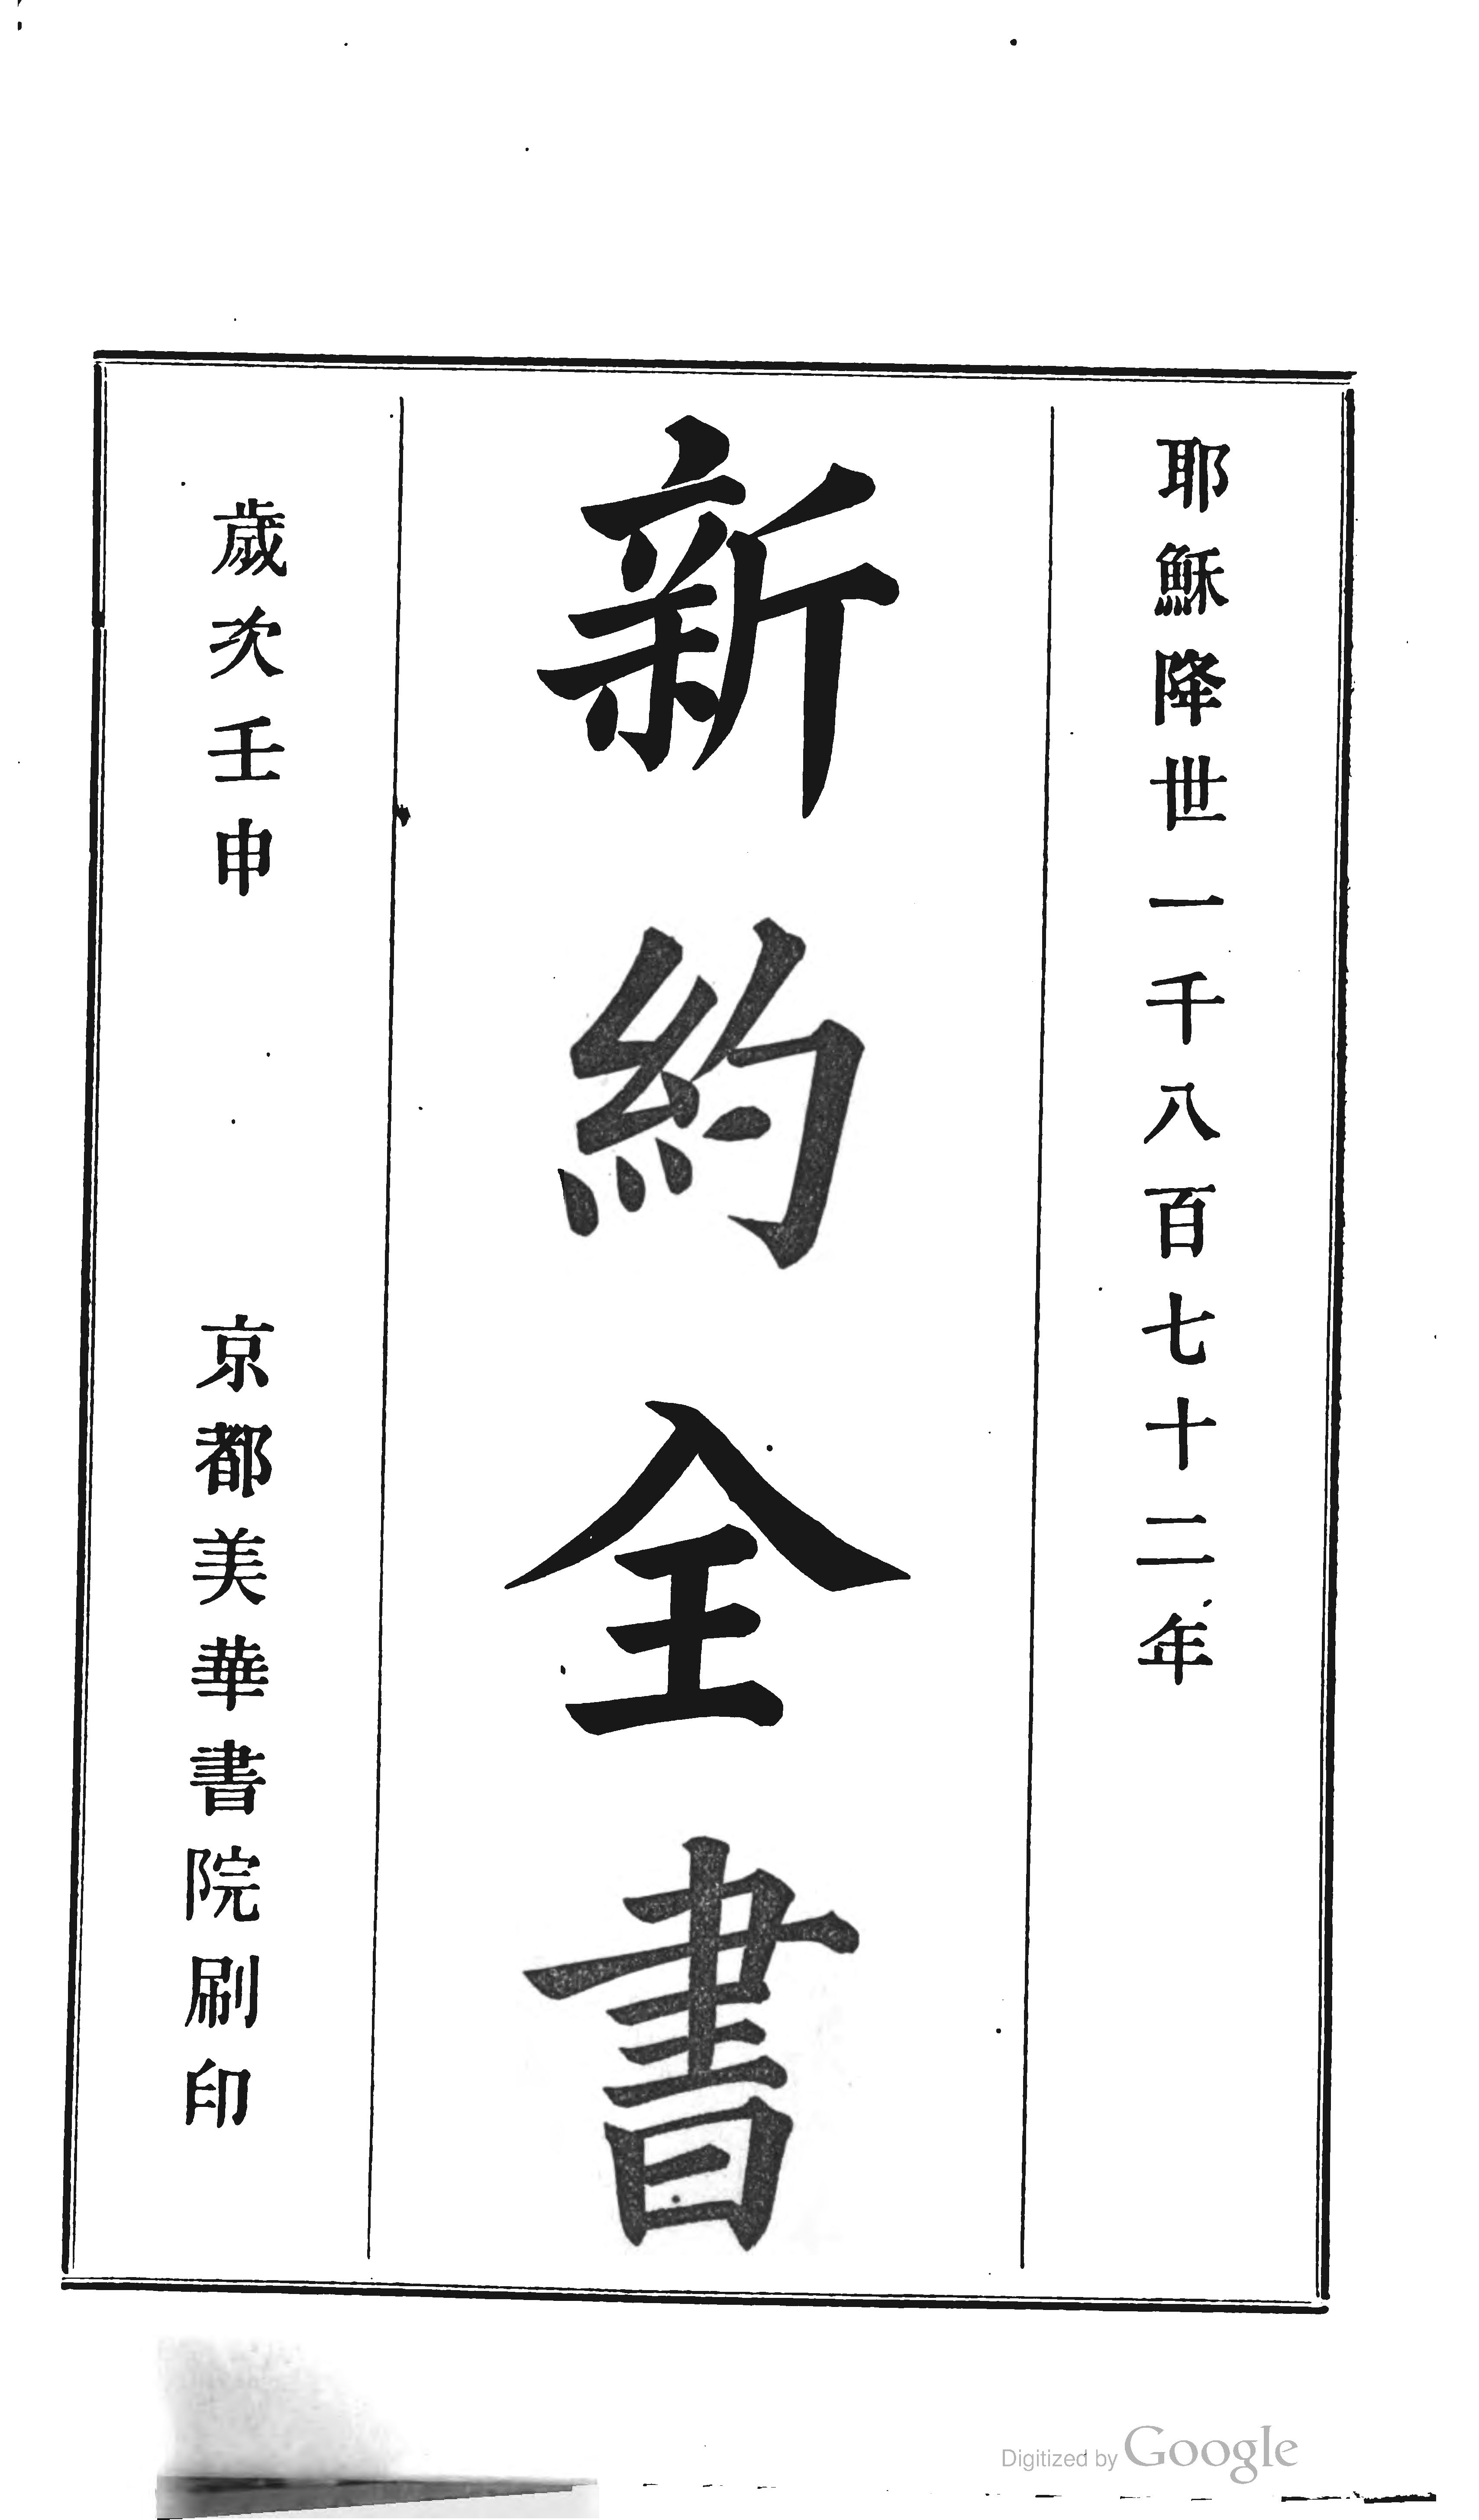 耶穌降世一千八百七十二年
新約全書
歲次壬申
京都美華書院刷印
Digitized by Google